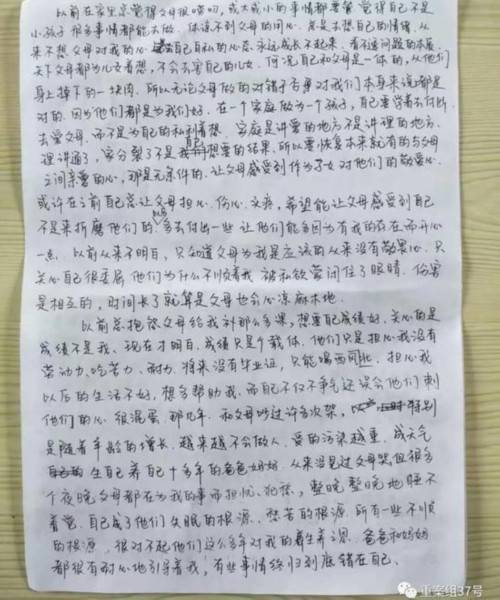 以前在家里总觉得父母很唠叨，或大或小的事情都要管 觉得自己不是
小孩子 很多事情都能去做 体谅不到父母的用心 总是去想自己的情绪，从
来不想父母对我的心 自己自私的心态 永远成长不起来 看不透问题的本质
天下父母都为儿女着想，不会去害自己的儿女 何况自己和父母是一体的，从他们
身上掉下的一块肉 所以无论父母做的对错于否单对我们本身来说都是
对的 因为他们都是为我们好，在一个家庭做为一个孩子，自己要学着去付出
去爱父母 而不是为自己的私利着想 家庭是讲爱的地方不是讲理的地方，
理讲通了，家分裂了不是自己想要的结果，所以要恢复本来就有的与父母
之间亲爱的心，那是无条件的，让父母感受到作为子女对他们的敬爱心，
或许在之前自己总让父母担心，伤心，支疼，希望能让父母感受到自己
不是来折磨他们的 多去付出一些 让他们能多因为有我的存在而开心
一点 以前从来不明白，只知道父母为我是应该的从来没有敬畏心 只
关心自己很委屈 他们为什么不顺着我 被私欲蒙闭住了眼睛 伤害
是相互的，时间长了就算是父母也会心凉麻木地
以前总抱怨父母给我补那么多课，想要自己成绩好，关心的是
成绩不是我，现在才明白，成绩只是个载体，他们只是担心我没有
劳动力，吃苦力，耐力，将来没有毕业证，只能喝西北风，担心我
以后的生活不好，想多帮助我，而自己不仅不争气还误会他们刺
他们的心 很混蛋 那几年 和父母吵过许多次架， 特别
是随着年龄的增长 越来越不会做人，爱的污染越重，成天气
生自己养自己十多年的爸爸妈妈，从来没见过父母哭但很多
个夜晚父母都在为我的事而担忧、犯愁，整晚整晚地睡不
着觉 自己成了他们失眠的根源，愁苦的根源 所有一些不顺
的根源，很对不起他们这么多年对我的养生养育 爸爸和妈妈
都很有耐心地引导着我，有些事情终归到底错在自己，
重案组37号